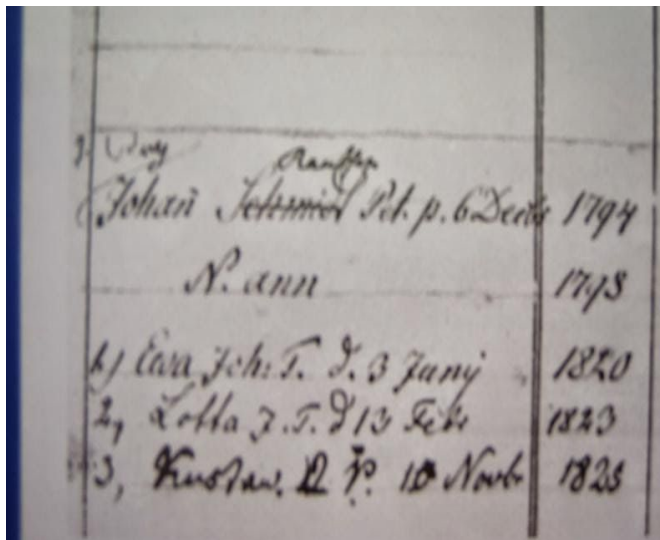 Johan̄ Pet. p. 6 Decbr 1794
N. ann 1798
1,) Ewa Joh: T. d. 3 Junÿ 1820
2, Lotta J. T. d 13 Febr 1823
3, Kustaw. P. 10 Novbr 1825